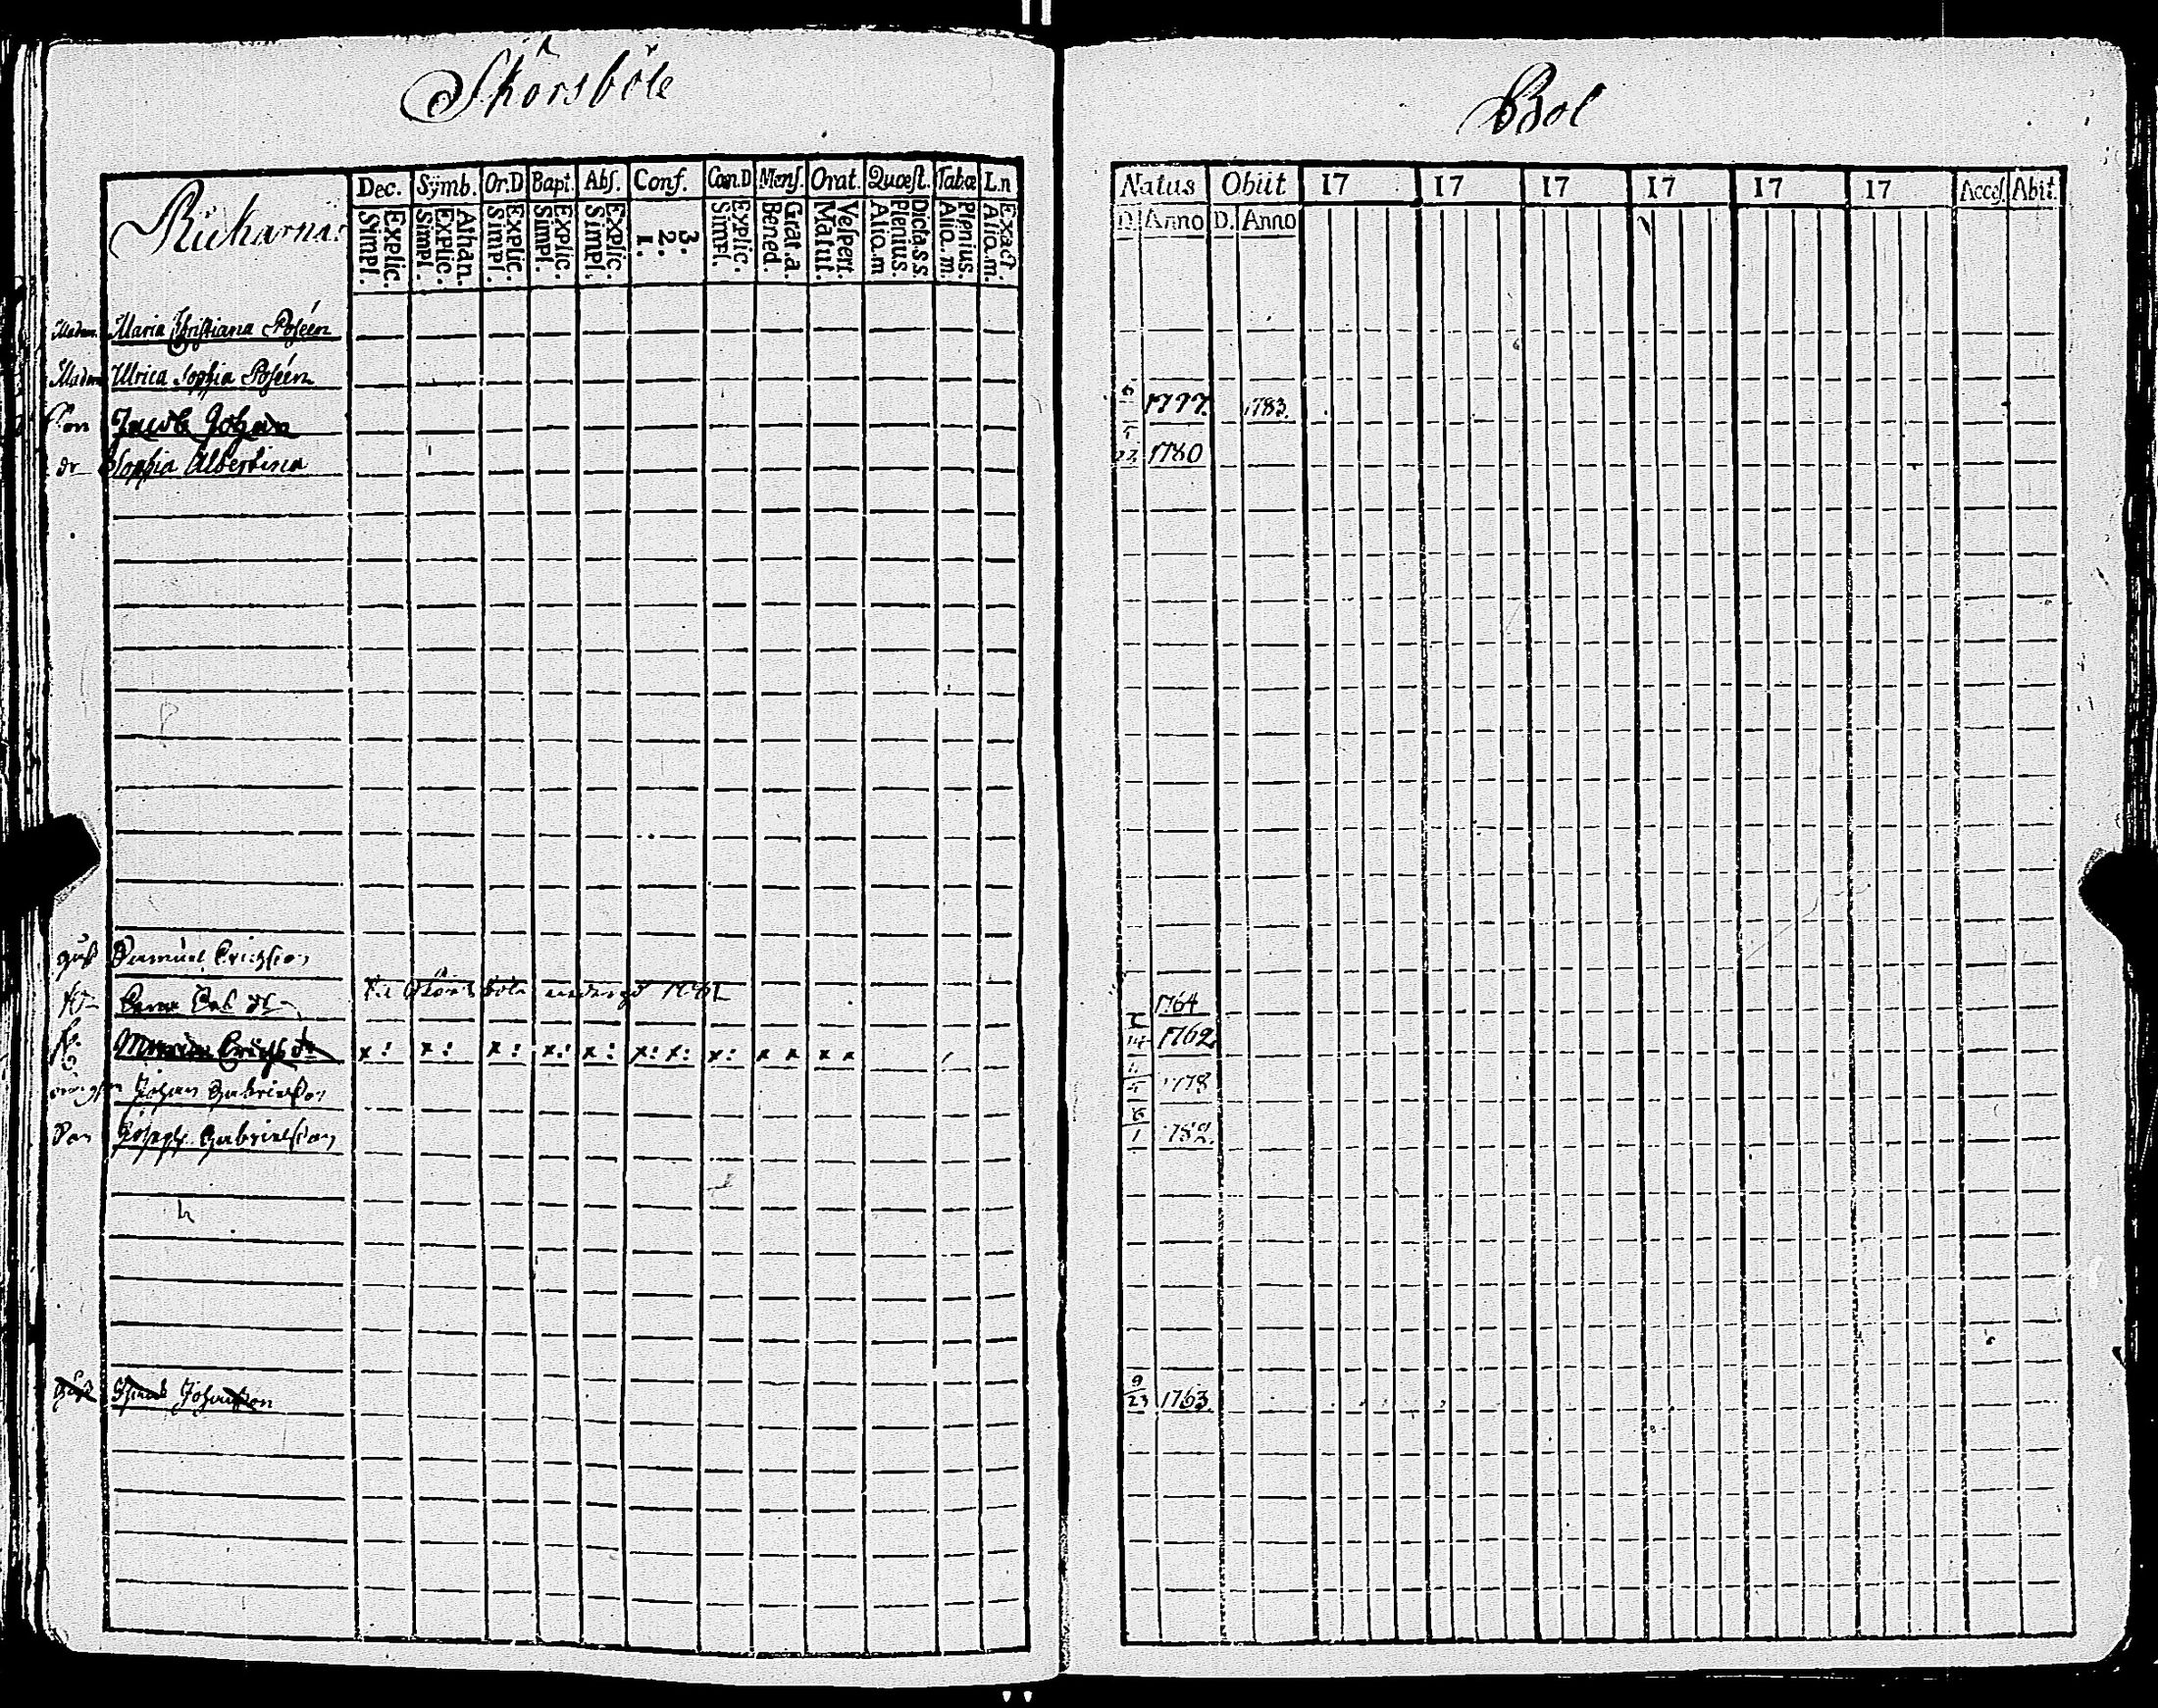 Skörsböle
Bol
Dec. Symb. Or.D Bapt. Abſ. Conf. Cœn.D Menſ. Orat. Quæſt. Tab.œ L.n
Explic. Simpl. Athan. Explic. Simpl. Explic. Simpl. Explic. Simpl. Explic. Simpl. 3. 2. 1. Explic. Simpl. Grat.a. Bened. Veſpert. Matut. Dicta.s.s. Plenius Alio.m Plenius. Alio.m. Exact. Alio.m.
Natus Obiit 17 17 17 17 17 17 Acceſ. Abit.
D. Anno D. Anno
Madam Maria Christiana Poſéen
Madam Ulrica Sophia Poſéen
Son Jacob Johan 1777. 1783.
dr Sophia Albertina 1780
Samuel Erichsson
1764
Maria Erichs dr x: x: x: x: x: x: x: x: x x x x 1762.
Johan Gabrielsson 1778
Son Joseph Gabrielsson 6/1 1782.
Johansson 9/23 1763